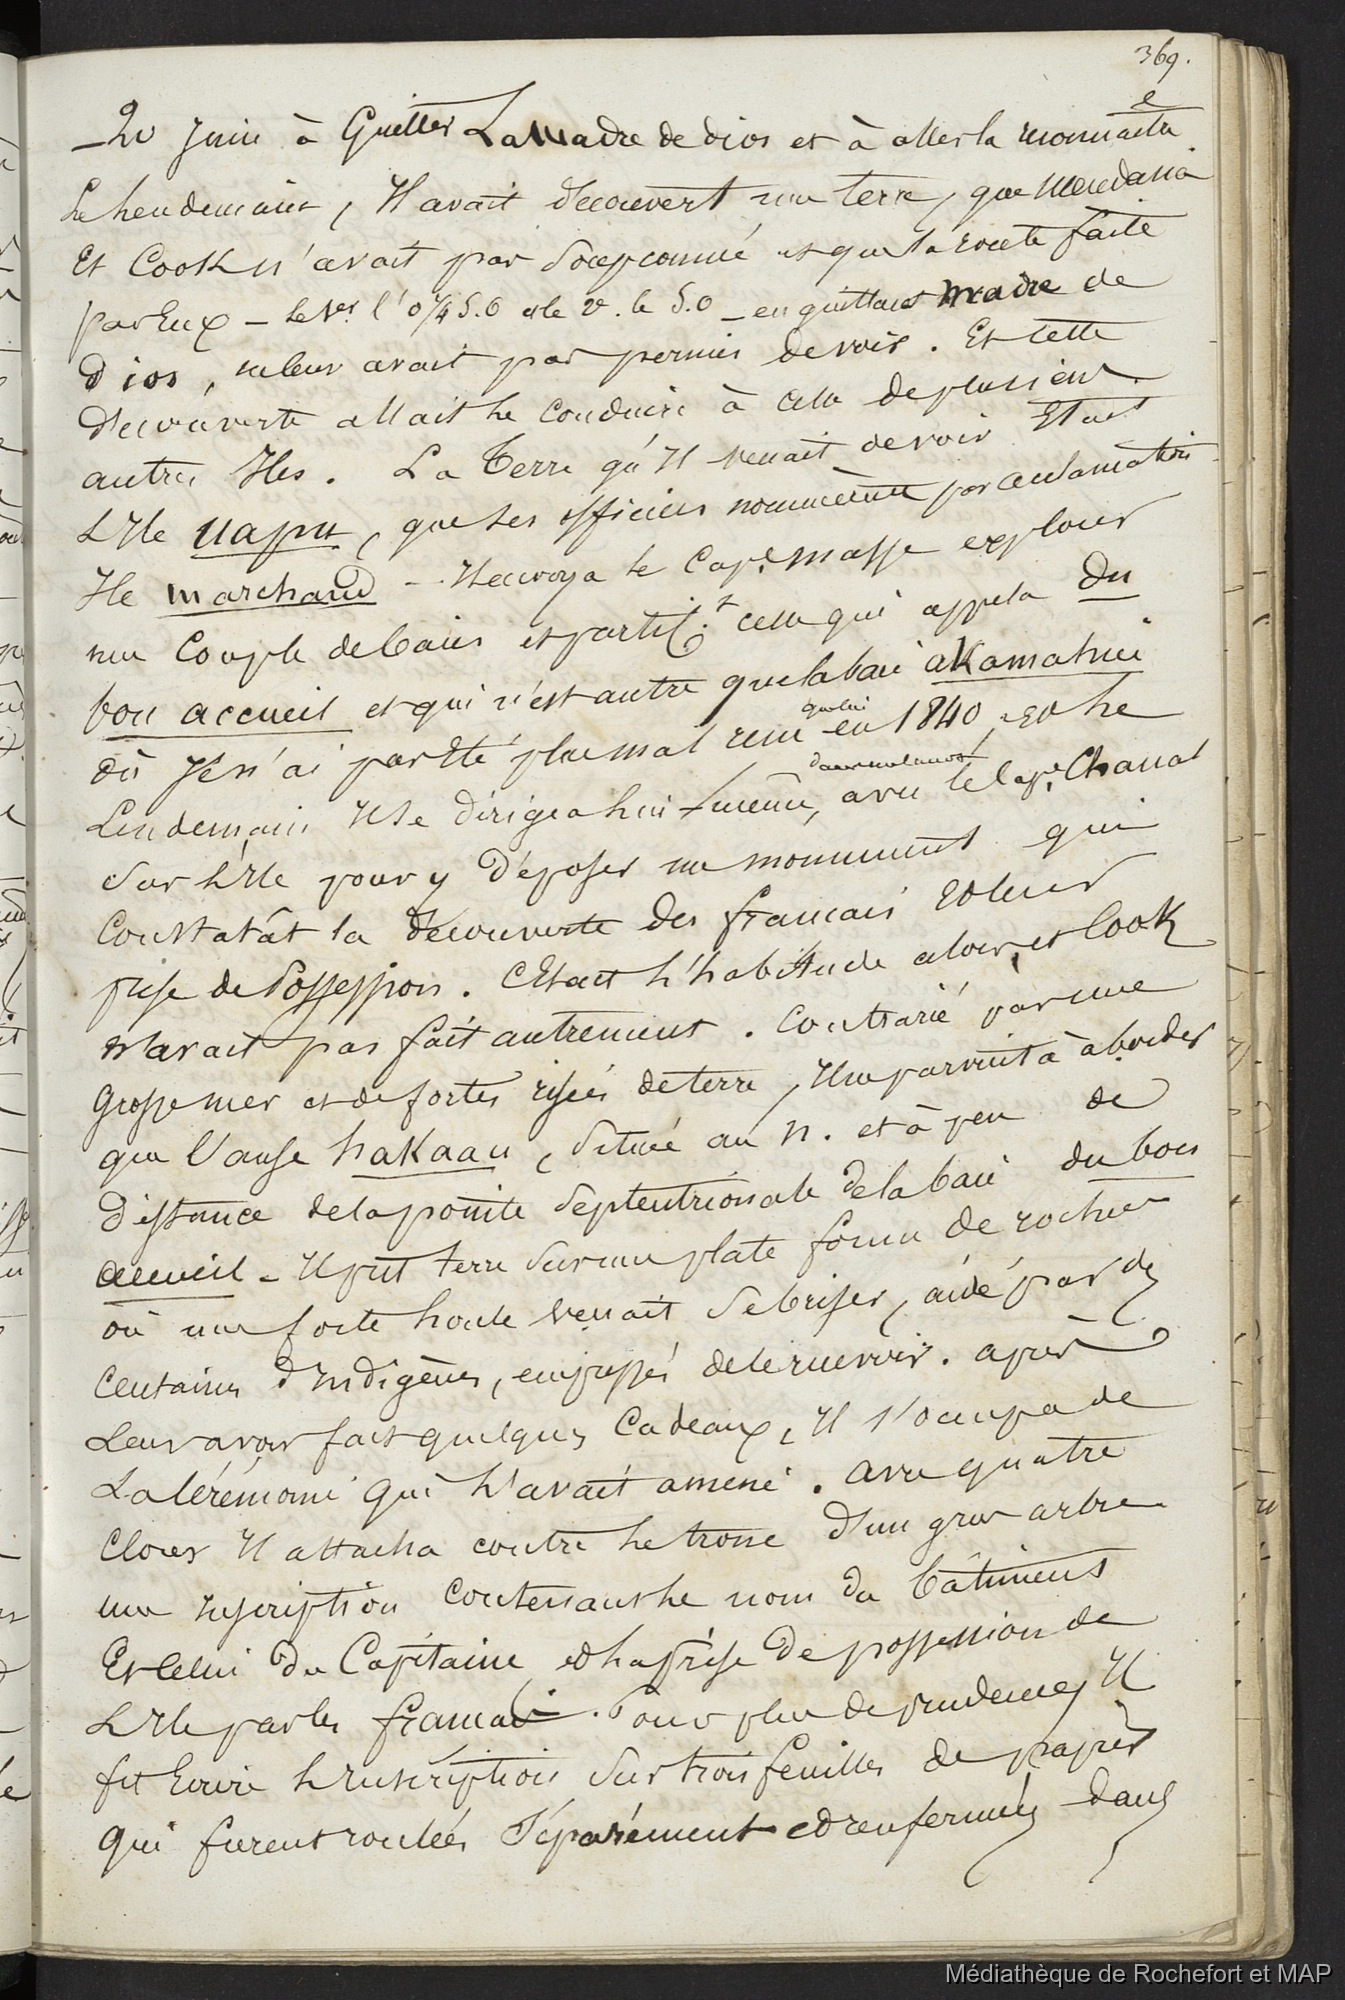 369.
20 Juin à Quitter La Madre de dios et à aller la reconnaitre
Le Lendemain, Il avait découvert une terre, que Mendana
Et Cook n'avait pas Soupçonné et que la route faite
par Eux — le 1er l'O 1/4 S.O et le 2e. le S.O — en quittant Madre de
Dios, ne leur avait pas permis de voir. Et cette
découverte allait le conduire à celle de plusieurs
autres Iles. La Terre qu'Il venait de voir Etait
L'Ile Uapu, que ses officiers nommèrent par acclamation
Ile Marchand — Il envoya le Cap.e Masse explorer
une Couple de baies et partict celle qui appela du
bon accueil et qui n'est autre que la baie akamahui
où Je n'ai pas Eté plus mal reçu que lui en 1840, Et le
Lendemain Il se dirigea lui-même, avec le Cap.e Chanal
Sur L'Ile pour y déposer un monument qui
Constatât la découverte des français Et leur
prise de Possession. C'Etait l'habitude alors, et Cook
n'avait pas fait autrement. Contrarié par une
Grosse mer et de fortes risées de terre, Il ne parvint à aborder
que l'anse hakaau, Située au N. et à peu de
distance de la pointe Septentrionale de la baie du bon
accueil — Il prit terre sur une plate forme de rocher
où une forte houle venait Se briser, aidé par des
Centaines d'Indigènes, empressés de le recevoir. après
Leur avoir fait quelques Cadeaux, Il s'occupa de
La Cérémonie qui L'avait amené. avec quatre
Clous Il attacha contre le tronc d'un gros arbre
une Inscription Contenant le nom du bâtiment
Et Celui du Capitaine Et la prise de possession de
L'Ile par les français. Pour plus de prudence, Il
fit Ecrire L'Inscription Sur trois feuilles de papier
qui furent roulées Séparément et renfermées dans
Médiathèque de Rochefort et MAP